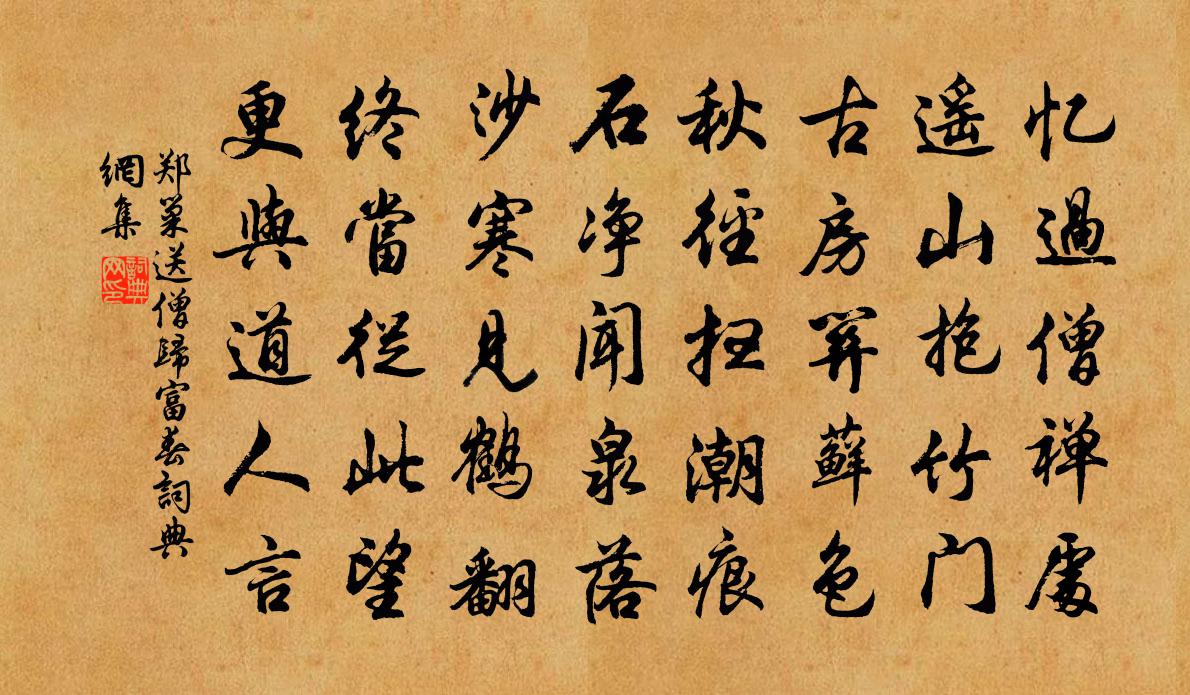 忆過僧禅處
遥山抱竹门
古房关蘚色
秋徑扫潮痕
石净闻泉落
沙寒见鹤翻
终當從此望
更與道人言
郑巢送僧歸富春詞典
網集
詞典
网印